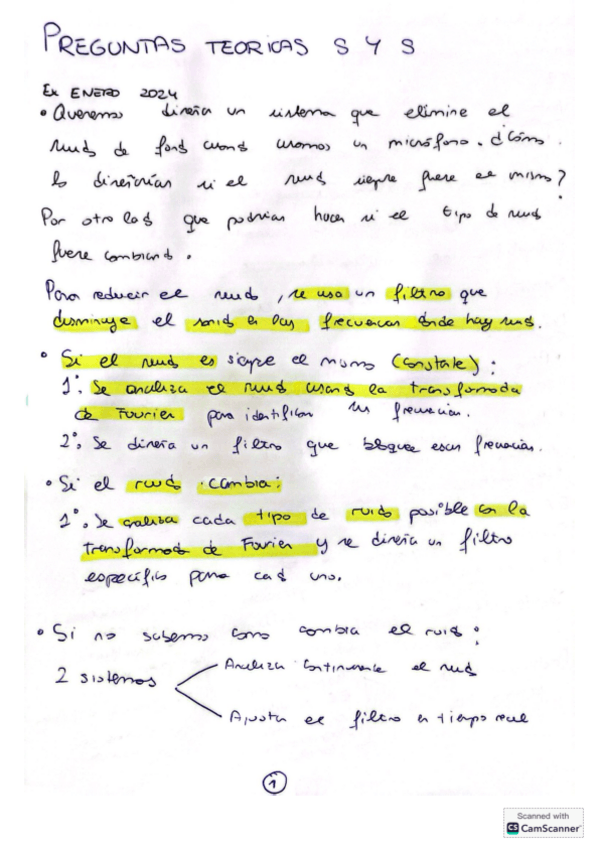 PREGUNTAS TEORICAS S Y S
Ex ENERO 2024
• Queremos diseñar un sistema que elimine el
ruido de fondo cuando usamos un micrófono. ¿Cómo
lo diseñarías si el ruido siempre fuere el mismo?
Por otro lado que podrias hacer si el tipo de ruido
fuere cambiando.
Para reducir el ruido, se usa un filtro que
disminuye el sonido en las frecuencias donde hay ruido.
• Si el ruido es siempre el mismo (constante):
1º. Se analiza el ruido usando la transformada
de Fourier para identificar sus frecuencias.
2º. Se diseña un filtro que bloquee esas frecuencias.
• Si el ruido cambia:
1º. Se analiza cada tipo de ruido posible con la
transformada de Fourier y se diseña un filtro
específico para cada uno.
• Si no sabemos como cambia el ruido:
2 sistemas
Analiza continuamente el ruido
Ajusta el filtro en tiempo real
1
Scanned with
CS CamScanner